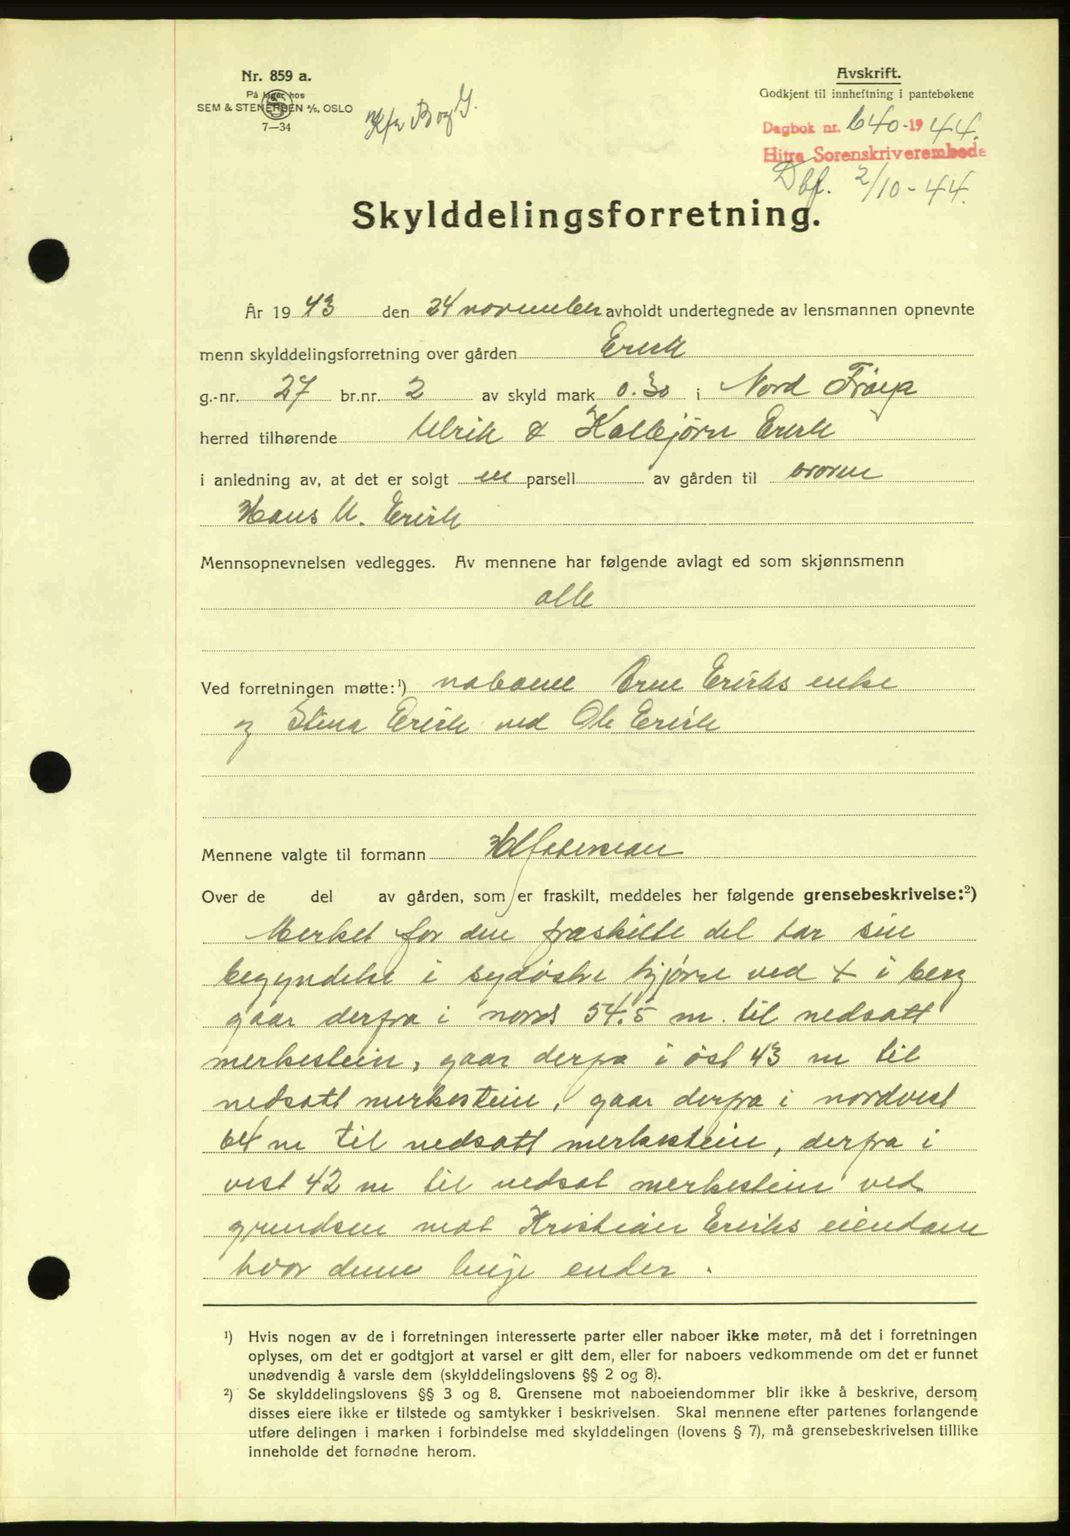 Nr. 859 a.
På lager hos
SEM & STENERSEN A/S, OSLO
7—34
Avskrift.
Godkjent til innheftning i pantebøkene
Dagbok nr. 640-1944.
Hitra Sorenskriverembede
Dbf. 2/10-44.
Skylddelingsforretning.
År 1943 den 24 november avholdt undertegnede av lensmannen opnevnte
menn skylddelingsforretning over gården Ervik
g.-nr. 27 br.nr. 2 av skyld mark 0.30 i Nord Frøya
herred tilhørende Ulrik & Kolbjørn Ervik
i anledning av, at det er solgt en parsell av gården til
Hans U. Ervik
Mennsopnevnelsen vedlegges. Av mennene har følgende avlagt ed som skjønnsmenn
alle
Ved forretningen møtte:¹) naboene Arne Erviks enke
og Stina Ervik ved Ole Ervik
Mennene valgte til formann
Over de del av gården, som er fraskilt, meddeles her følgende grensebeskrivelse:²)
Merket for den fraskilte del tar sin
begyndelse i sydøstre hjørne ved + i berg
gaar derfra i nord 54.5 m. til nedsatt
merkestein, gaar derfra i øst 43 m til
nedsatt merkestein, gaar derfra i nordvest
64 m til nedsatt merkestein, derfra i
vest 42 m til nedsat merkestein ved
grendsen mot Kristian Erviks eiendom
hvor denne linje ender.
¹) Hvis nogen av de i forretningen interesserte parter eller naboer ikke møter, må det i forretningen
oplyses, om det er godtgjort at varsel er gitt dem, eller for naboers vedkommende om det er funnet
unødvendig å varsle dem (skylddelingslovens §§ 2 og 8).
²) Se skylddelingslovens §§ 3 og 8. Grensene mot naboeiendommer blir ikke å beskrive, dersom
disses eiere ikke er tilstede og samtykker i beskrivelsen. Skal mennene efter partenes forlangende
utføre delingen i marken i forbindelse med skylddelingen (lovens § 7), må grensebeskrivelsen tillike
inneholde det fornødne herom.